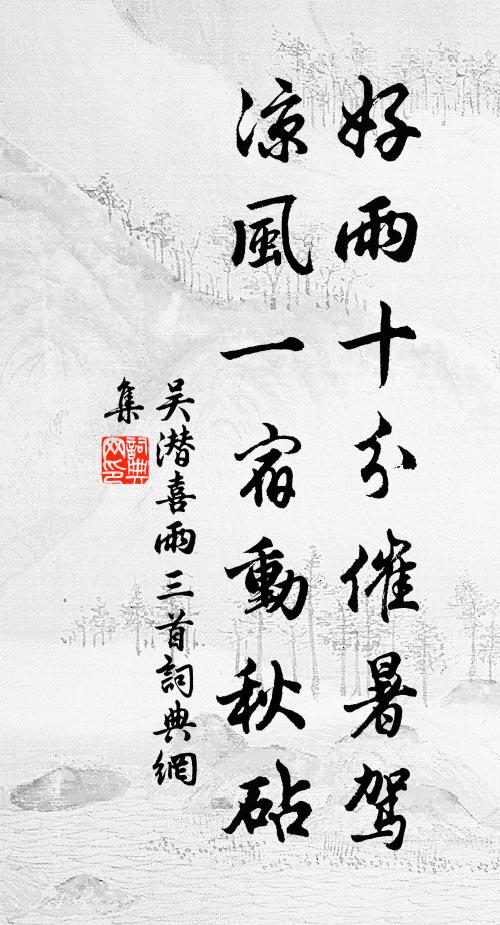 好雨十分催暑駕
涼風一宿動秋砧
吴潛喜雨三首詞典網
集
詞典網印